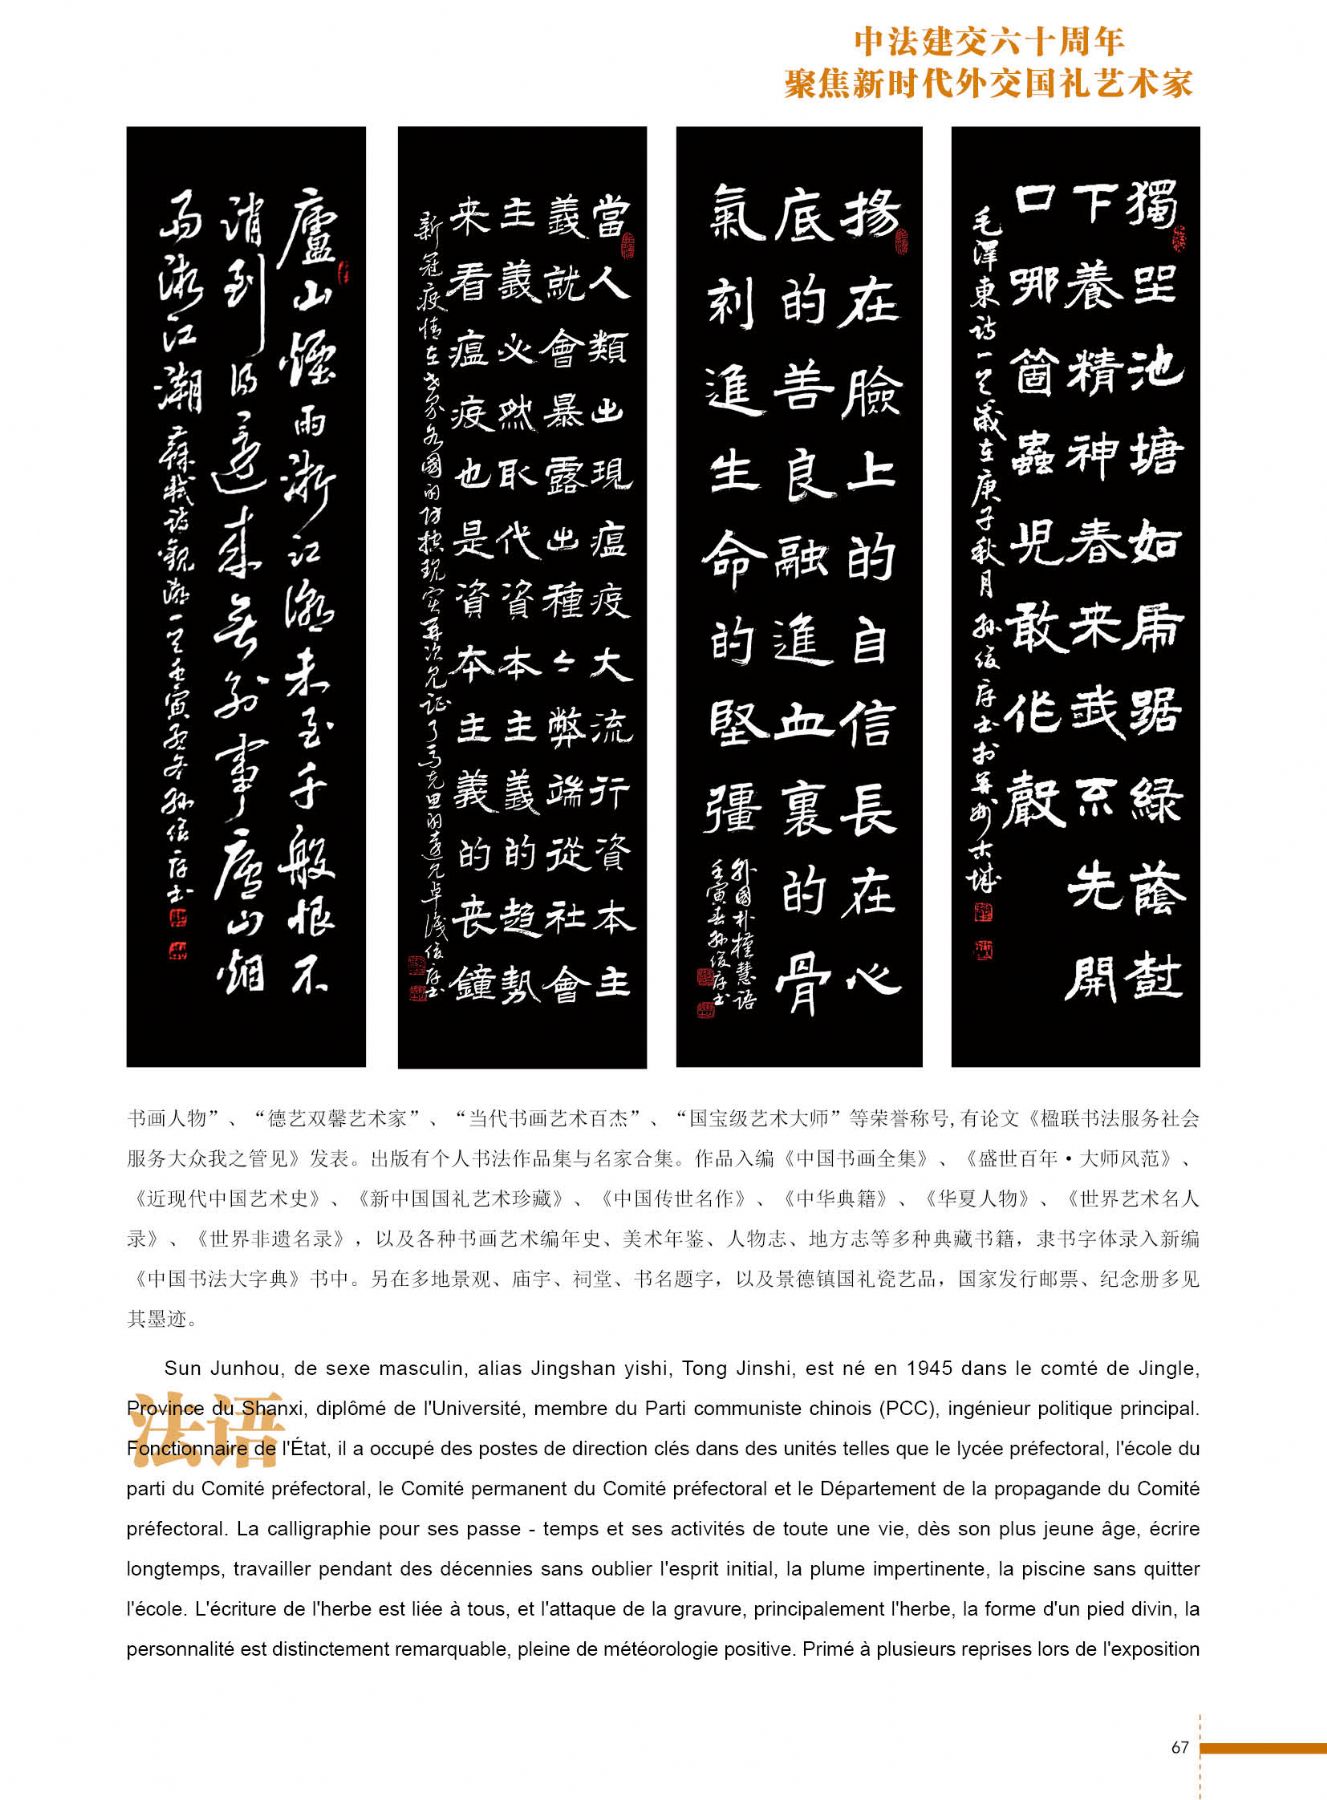 中法建交六十周年
聚焦新时代外交国礼艺术家
獨坐池塘如虎踞綠蔭樹
下養精神春来我不先開
口哪箇蟲児敢作聲
毛澤東诗一首歲在庚子秋月 孙俊厚书於并州古城
揚在臉上的自信長在心
底的善良融進血裏的骨
氣刻進生命的堅彊
外國朴槿慧语
壬寅春孙俊厚书
當人類出現瘟疫大流行資本主
義就會暴露出種種弊端從社會
主義必然取代資本主義的趨勢
来看瘟疫也是資本主義的丧鐘
新冠疫情在世界各國的防控現实再次見证了马克思的遠見卓識 俊厚书
廬山煙雨浙江潮未至千般恨不
消到得還來無别事廬山烟
雨浙江潮 蘇軾诗觀潮一首壬寅孟冬孙俊厚书
书画人物”、“德艺双馨艺术家”、“当代书画艺术百杰”、“国宝级艺术大师”等荣誉称号,有论文《楹联书法服务社会
服务大众我之管见》发表。出版有个人书法作品集与名家合集。作品入编《中国书画全集》、《盛世百年·大师风范》、
《近现代中国艺术史》、《新中国国礼艺术珍藏》、《中国传世名作》、《中华典籍》、《华夏人物》、《世界艺术名人
录》、《世界非遗名录》，以及各种书画艺术编年史、美术年鉴、人物志、地方志等多种典藏书籍，隶书字体录入新编
《中国书法大字典》书中。另在多地景观、庙宇、祠堂、书名题字，以及景德镇国礼瓷艺品，国家发行邮票、纪念册多见
其墨迹。
法语
Sun Junhou, de sexe masculin, alias Jingshan yishi, Tong Jinshi, est né en 1945 dans le comté de Jingle,
Province du Shanxi, diplômé de l'Université, membre du Parti communiste chinois (PCC), ingénieur politique principal.
Fonctionnaire de l'État, il a occupé des postes de direction clés dans des unités telles que le lycée préfectoral, l'école du
parti du Comité préfectoral, le Comité permanent du Comité préfectoral et le Département de la propagande du Comité
préfectoral. La calligraphie pour ses passe - temps et ses activités de toute une vie, dès son plus jeune âge, écrire
longtemps, travailler pendant des décennies sans oublier l'esprit initial, la plume impertinente, la piscine sans quitter
l'école. L'écriture de l'herbe est liée à tous, et l'attaque de la gravure, principalement l'herbe, la forme d'un pied divin, la
personnalité est distinctement remarquable, pleine de météorologie positive. Primé à plusieurs reprises lors de l'exposition
67